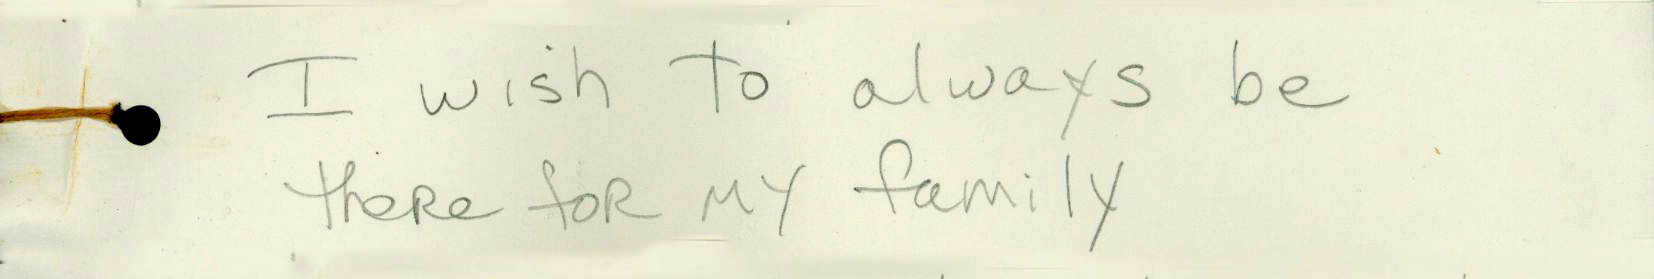 I wish to always be
there for my family